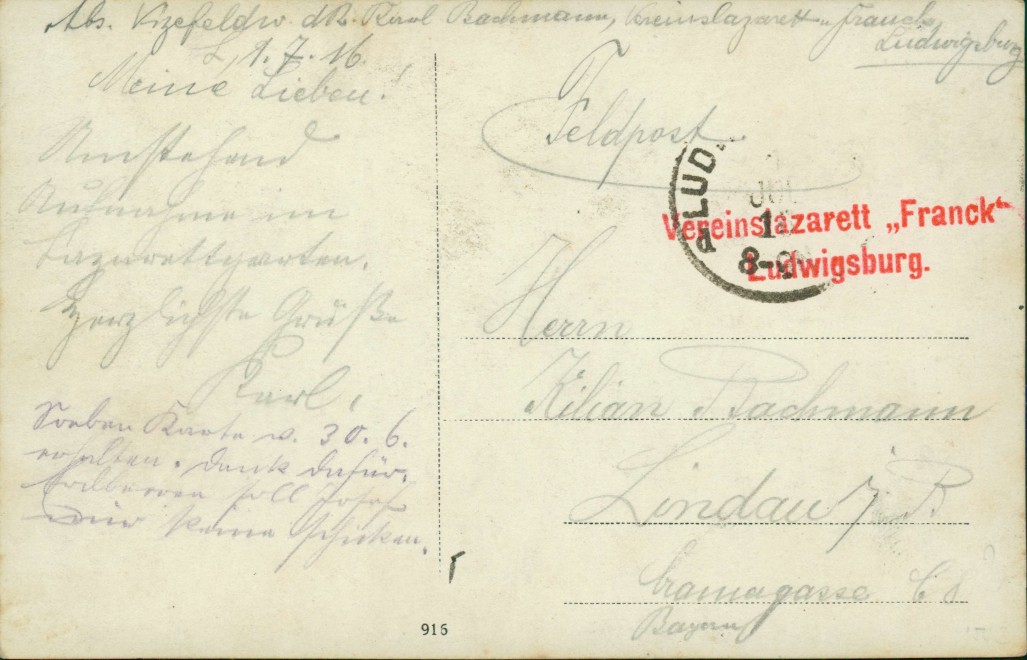 Abs. Vizefeldw. d R. Karl Bachmann, Vereinslazarett „Franck“
Ludwigsburg
L, 1. 7. 16.
Meine Lieben!
Umstehend
Aufnahme im
Lazarettgarten.
Herzlichste Grüße
Karl.
Soeben Karte v. 30. 6.
erhalten. Dank dafür.
soll Josef
mir keine schicken.
Feldpost
LUD
JUL
1
8-9
Vereinslazarett „Franck“
Ludwigsburg.
Herrn
Kilian Bachmann
Lindau i/B.
Cramergasse C
Bayern
916